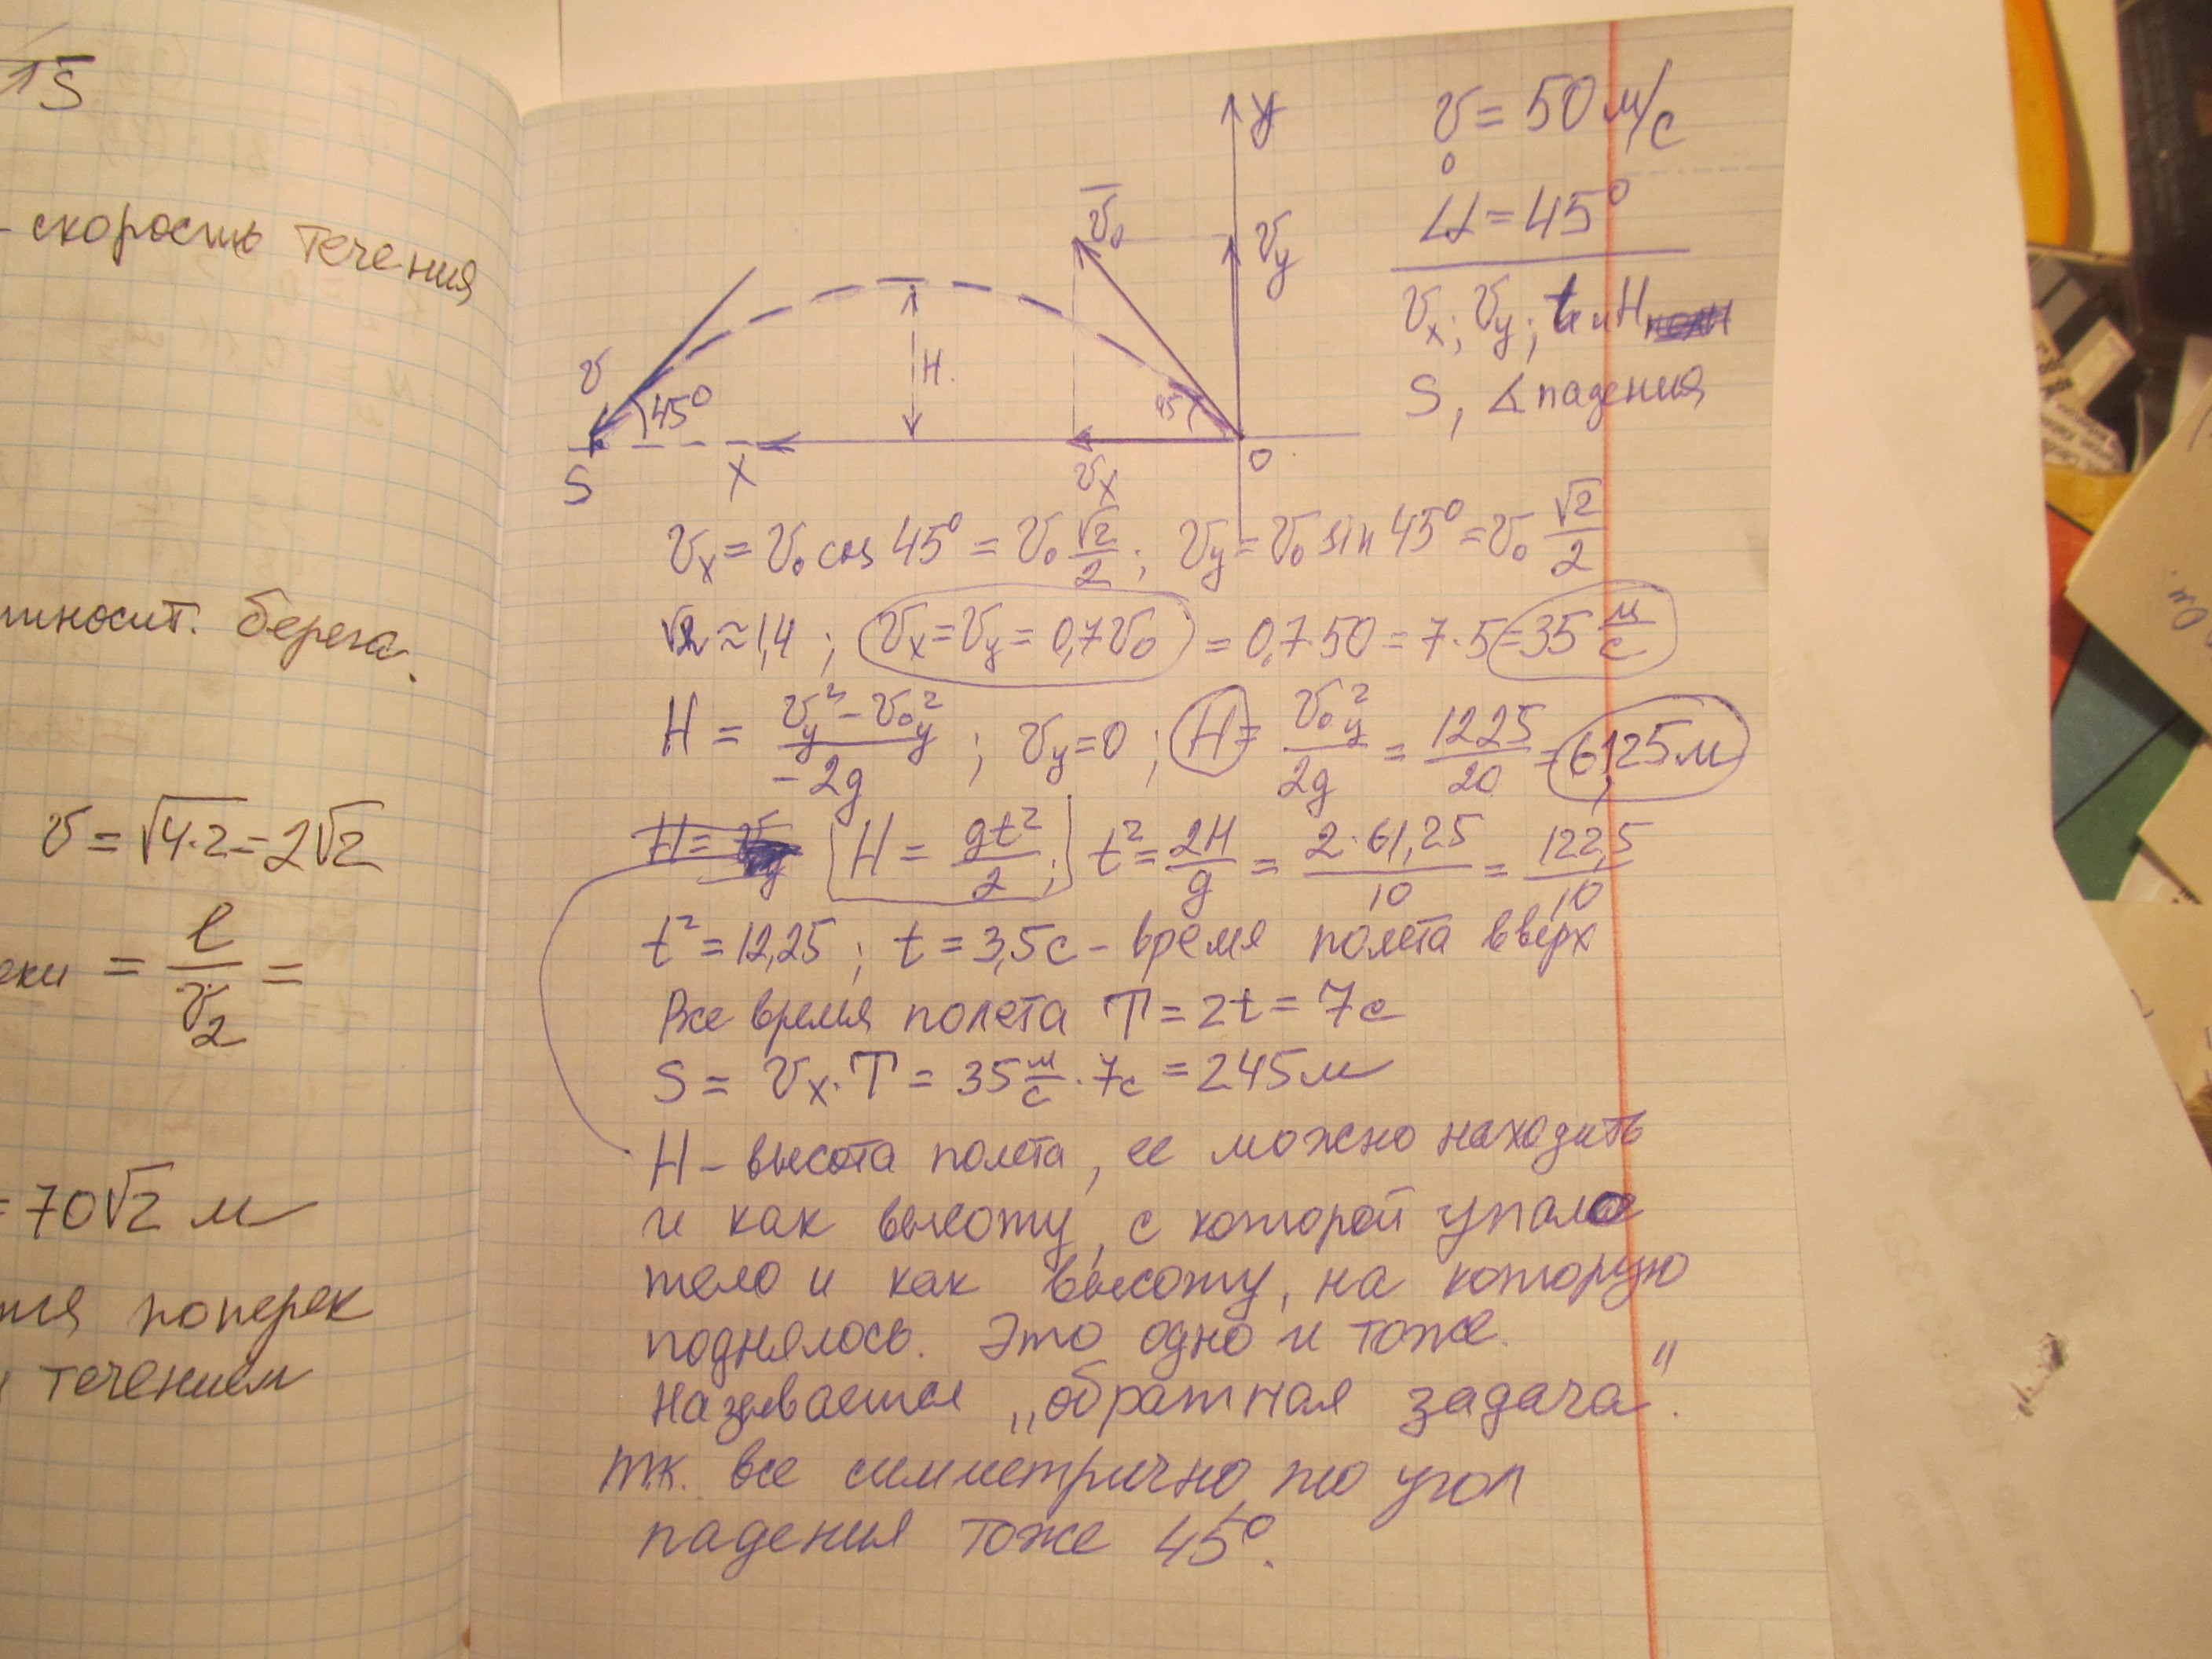 15
- скорость течения
относит. берега.
v = √4·2 = 2√2
еки = l/v₂ =
= 70√2 м
ния поперек
и течением
y
v̄₀
v_y
v
45°
H.
45
S
X
v_x
0
v₀ = 50 м/с
∠α = 45°
v_x; v_y; t и H
S, ∡ падения
v_x = v₀ cos 45° = v₀ √2/2; v_y = v₀ sin 45° = v₀ √2/2
√2 ≈ 1,4; v_x = v_y = 0,7v₀ = 0,7·50 = 7·5 = 35 м/с
H = (v_y² - v₀y²)/(-2g); v_y = 0; H = v₀y²/2g = 1225/20 = 61,25 м
H = gt²/2; t² = 2H/g = 2·61,25/10 = 122,5/10
t² = 12,25; t = 3,5 с - время полета вверх
Все время полета T = 2t = 7 с
S = v_x·T = 35 м/с · 7с = 245 м
H - высота полета, ее можно находить
и как высоту, с которой упало
тело и как высоту, на которую
поднялось. Это одно и тоже.
Называется „обратная задача".
т.к. все симметрично, то угол
падения тоже 45°.